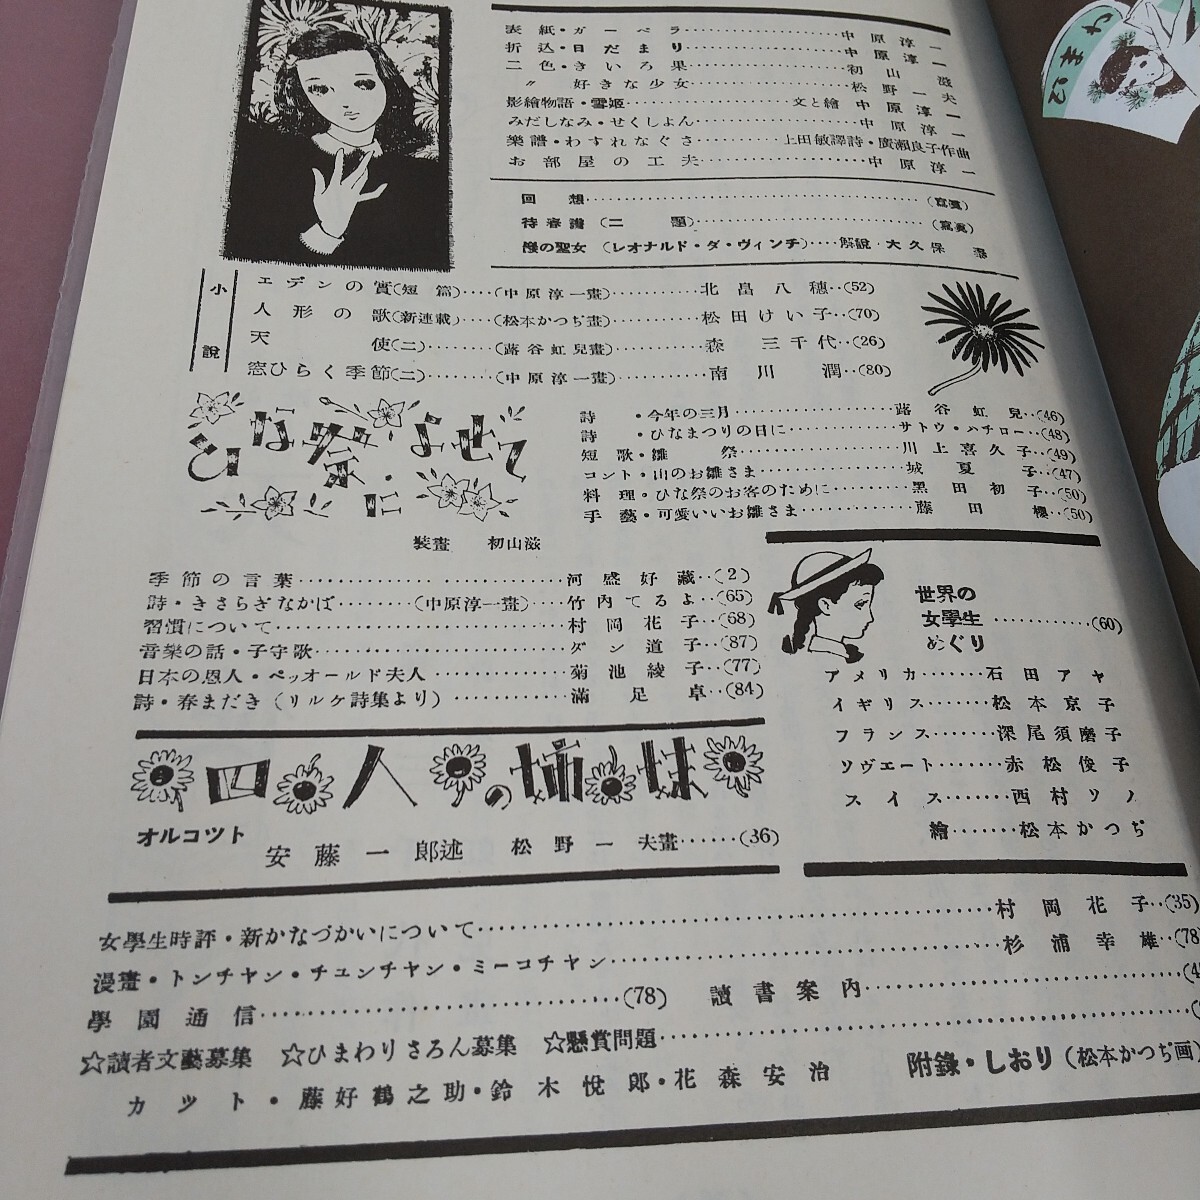 ひまわ
表紙・ガーベラ……………中原淳一
折込・日だまり……………中原淳一
二色・きいろ果……………初山滋
〃 好きな少女……………松野一夫
影繪物語・雪姫……………文と繪 中原淳一
みだしなみ・せくしよん……………中原淳一
樂譜・わすれなぐさ……………上田敏譯詩・廣瀨良子作曲
お部屋の工夫……………中原淳一
回想……………(寫眞)
待春譜(二題)……………(寫眞)
の聖女(レオナルド・ダ・ヴィンチ)……解説・大久保
小說
エデンの實(短篇)……(中原淳一畫)……北畠八穗…(52)
人形の歌(新連載)……(松本かつぢ畫)……松田けい子…(70)
天使(二)……(蕗谷虹兒畫)……森三千代…(26)
窓ひらく季節(二)……(中原淳一畫)……南川潤…(80)
ひな祭によせて
裝畫 初山滋
詩・今年の三月……………蕗谷虹兒…(46)
詩・ひなまつりの日に……………サトウ・ハチロー…(48)
短歌・雛祭……………川上喜久子…(49)
コント・山のお雛さま……………城夏子…(47)
料理・ひな祭のお客のために……………黑田初子…(50)
手藝・可愛いいお雛さま……………藤田櫻…(50)
季節の言葉……………河盛好藏…(2)
詩・きさらぎなかば………(中原淳一畫)…竹内てるよ…(65)
習慣について……………村岡花子…(68)
音樂の話・子守歌……………ダン道子…(87)
日本の恩人・ペッオールド夫人……………菊池綾子…(77)
詩・春まだき(リルケ詩集より)……………滿足卓…(84)
世界の
女學生……………(60)
めぐり
アメリカ……石田アヤ
イギリス……松本京子
フランス……深尾須磨子
ソヴエート……赤松俊子
スイス……西村ソノ
繪……松本かつぢ
四人の姉妹
オルコツト
安藤一郎述 松野一夫畫……(36)
女學生時評・新かなづかいについて……………村岡花子…(35)
漫畫・トンチヤン・チユンチヤン・ミーコチヤン……………杉浦幸雄…(78)
學園通信……………(78) 讀書案内……………(4
☆讀者文藝募集 ☆ひまわりさろん募集 ☆懸賞問題……………(
カツト・藤好鶴之助・鈴木悅郎・花森安治 附錄・しおり(松本かつぢ画)